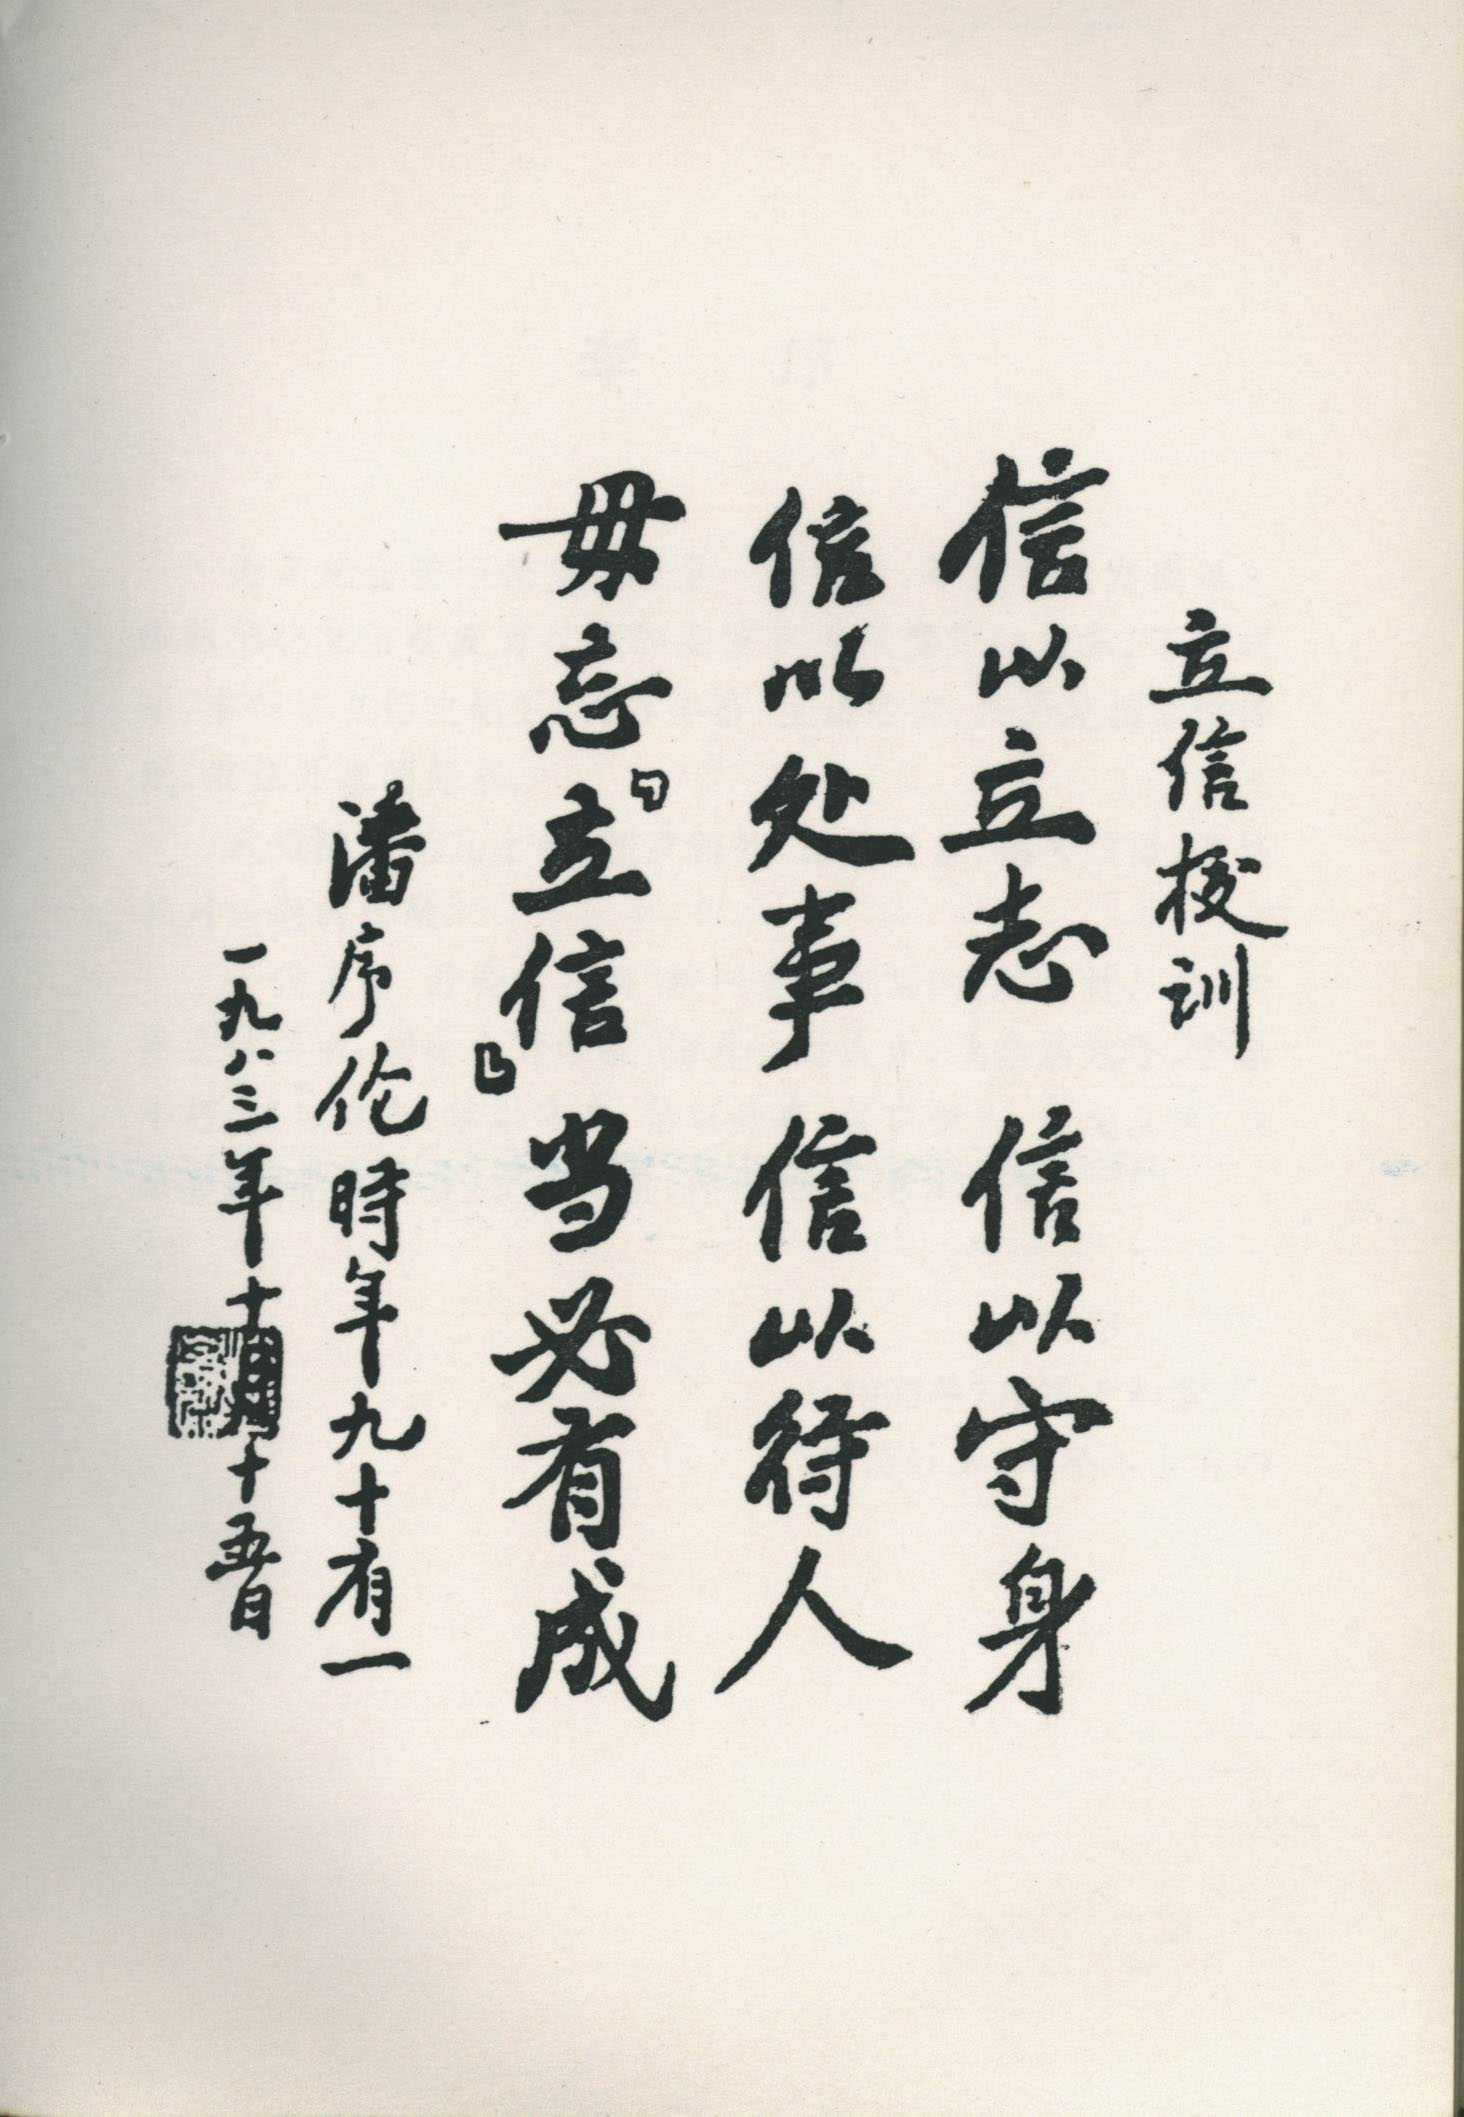 立信校训
信以立志 信以守身
信以处事 信以待人
毋忘『立信』当必有成
潘序伦時年九十有一
一九八三年十月十五日